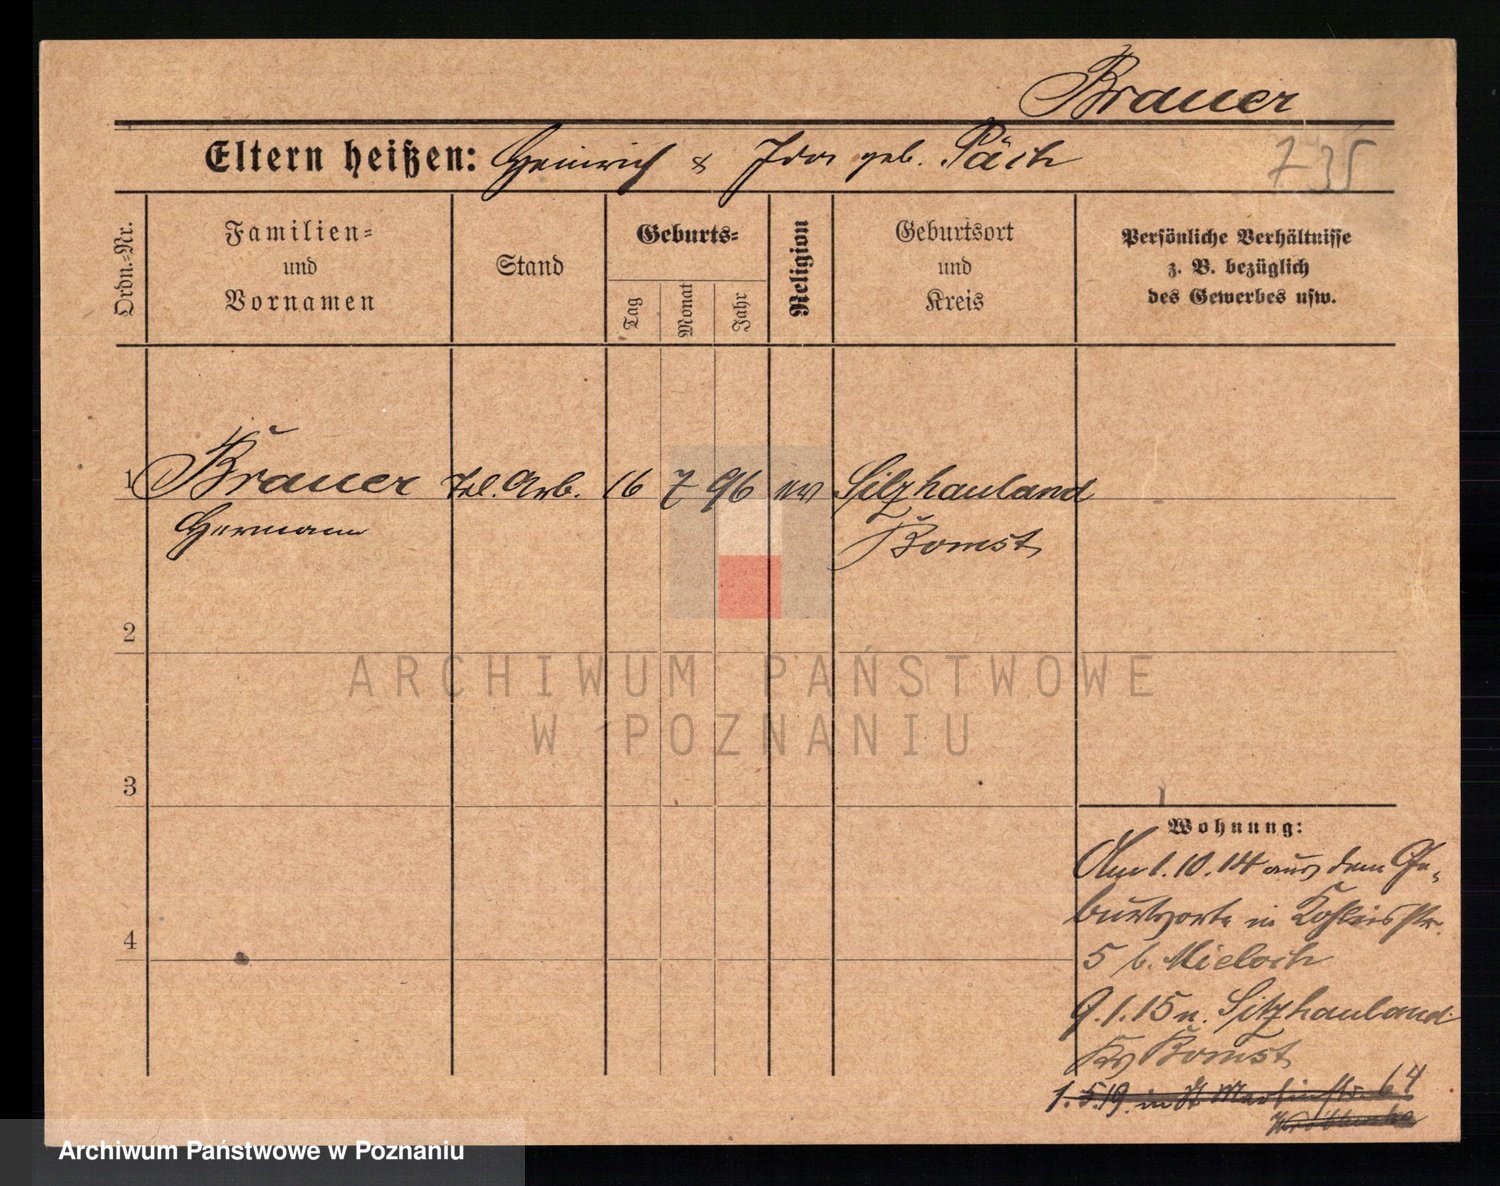 Brauer
Eltern heißen: Heinrich & Ida geb. Päch
735
Ordn.-Nr.
Familien-
und
Vornamen
Stand
Geburts-
Tag
Monat
Jahr
Religion
Geburtsort
und
Kreis
Persönliche Verhältnisse
z. B. bezüglich
des Gewerbes usw.
1 Brauer tel. Arb. 16 7 96 ev Silzhauland
Hermann Bomst
2
3
4
ARCHIWUM PAŃSTWOWE
W POZNANIU
Wohnung:
Am 1.10.14 aus dem Ge-
burtsorte in str.
5 b. Mieloch
9.1.15 n. Silzhauland
Krs Bomst
1.5.19. in St Martinstr. 64
Archiwum Państwowe w Poznaniu